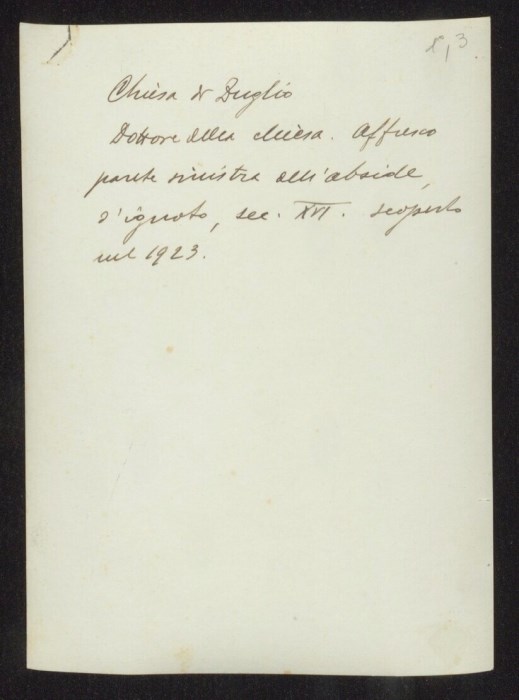 8,3
Chiesa di Buglio
Dottore della chiesa. Affresco
parete sinistra dell'abside,
d'ignoto, sec. XVI. scoperto
nel 1923.